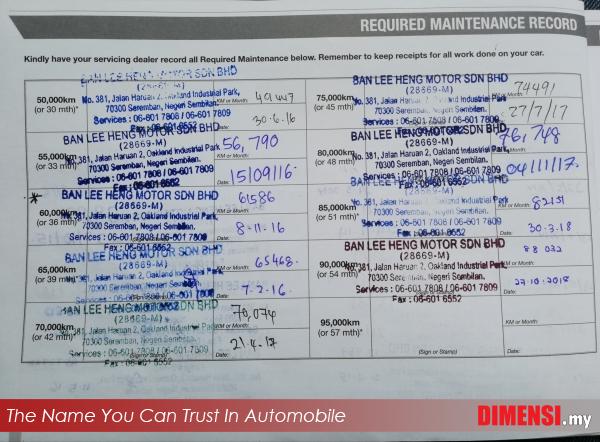 REQUIRED MAINTENANCE RECORD
Kindly have your servicing dealer record all Required Maintenance below. Remember to keep receipts for all work done on your car.
BAN LEE HENG MOTOR SDN BHD
(28669-M)
50,000km
(or 30 mth)*
No. 381, Jalan Haruan 2, Oakland Industrial Park,
70300 Seremban, Negeri Sembilan.
Services : 06-601 7808 / 06-601 7809
Fax : 06-601 6552
KM or Month:
49447
Date:
30.6.16
BAN LEE HENG MOTOR SDN BHD
(28669-M)
55,000km
(or 33 mth)*
No. 381, Jalan Haruan 2, Oakland Industrial Park,
70300 Seremban, Negeri Sembilan.
Services : 06-601 7808 / 06-601 7809
Fax : 06-601 6552
56,790
15/09/16.
BAN LEE HENG MOTOR SDN BHD
(28669-M)
60,000km
(or 36 mth)*
No. 381, Jalan Haruan 2, Oakland Industrial Park,
70300 Seremban, Negeri Sembilan.
Services : 06-601 7808 / 06-601 7809
Fax : 06-601 6552
61586
Date:
8-11-16
BAN LEE HENG MOTOR SDN BHD
(28669-M)
65,000km
(or 39 mth)*
No. 381, Jalan Haruan 2, Oakland Industrial Park,
70300 Seremban, Negeri Sembilan.
Services : 06-601 7808 / 06-601 7809
65468.
Date:
7-2-16.
BAN LEE HENG MOTOR SDN BHD
(28669-M)
70,000km
(or 42 mth)*
No. 381, Jalan Haruan 2, Oakland Industrial Park,
70300 Seremban, Negeri Sembilan.
Services : 06-601 7808 / 06-601 7809
(Sign or Stamp)
Fax : 06-601 6552
70,074
Date:
21.4.17
BAN LEE HENG MOTOR SDN BHD
(28669-M)
75,000km
(or 45 mth)*
No. 381, Jalan Haruan 2, Oakland Industrial Park,
70300 Seremban, Negeri Sembilan.
Services : 06-601 7808 / 06-601 7809
Fax : 06-601 6552
74491
27/7/17
BAN LEE HENG MOTOR SDN BHD
(28669-M)
80,000km
(or 48 mth)*
No. 381, Jalan Haruan 2, Oakland Industrial Park,
70300 Seremban, Negeri Sembilan.
Services : 06-601 7808 / 06-601 7809
Fax : 06-601 6552
76,748
04/11/17.
BAN LEE HENG MOTOR SDN BHD
(28669-M)
85,000km
(or 51 mth)*
No. 381, Jalan Haruan 2, Oakland Industrial Park,
70300 Seremban, Negeri Sembilan.
Services : 06-601 7808 / 06-601 7809
Fax : 06-601 6552
82151
Date:
30.3.18
BAN LEE HENG MOTOR SDN BHD
(28669-M)
90,000km
(or 54 mth)*
No. 381, Jalan Haruan 2, Oakland Industrial Park,
70300 Seremban, Negeri Sembilan.
Services : 06-601 7808 / 06-601 7809
Fax : 06-601 6552
88 032
Date:
27.10.2018
95,000km
(or 57 mth)*
(Sign or Stamp)
KM or Month:
Date:
The Name You Can Trust In Automobile
DIMENSI.my